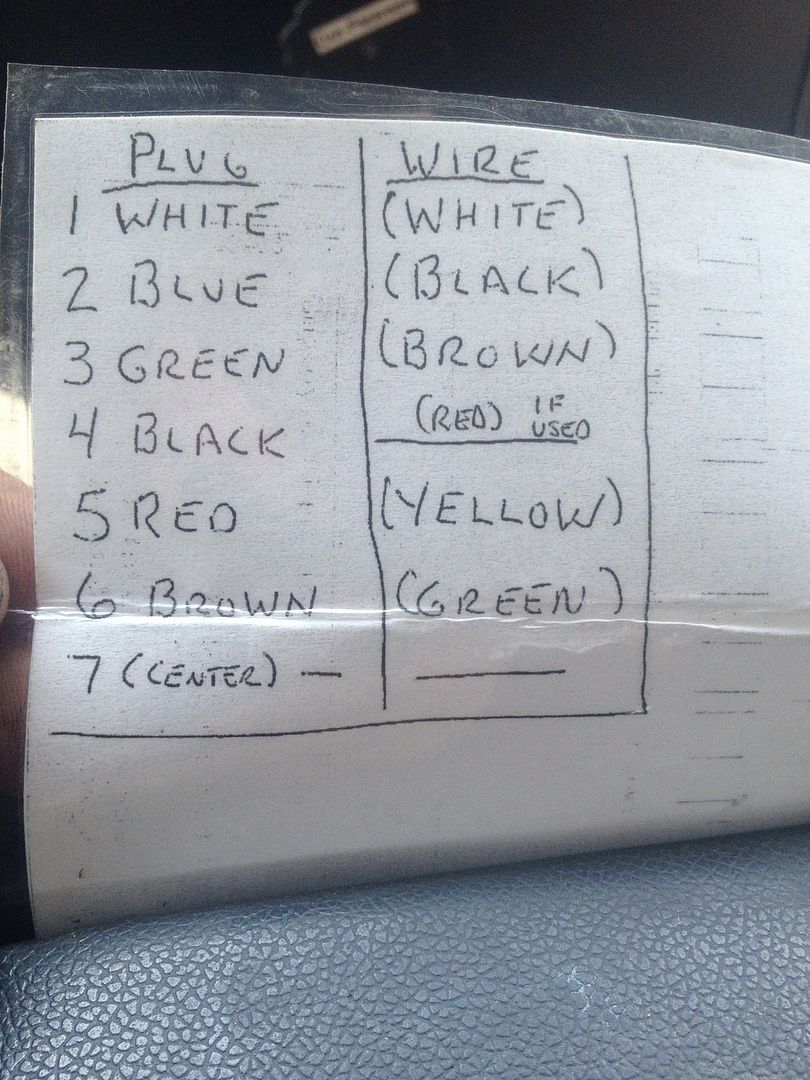 PLUG WIRE
1 WHITE (WHITE)
2 BLUE (BLACK)
3 GREEN (BROWN)
4 BLACK (RED) IF USED
5 RED (YELLOW)
6 BROWN (GREEN)
7 (CENTER) — —